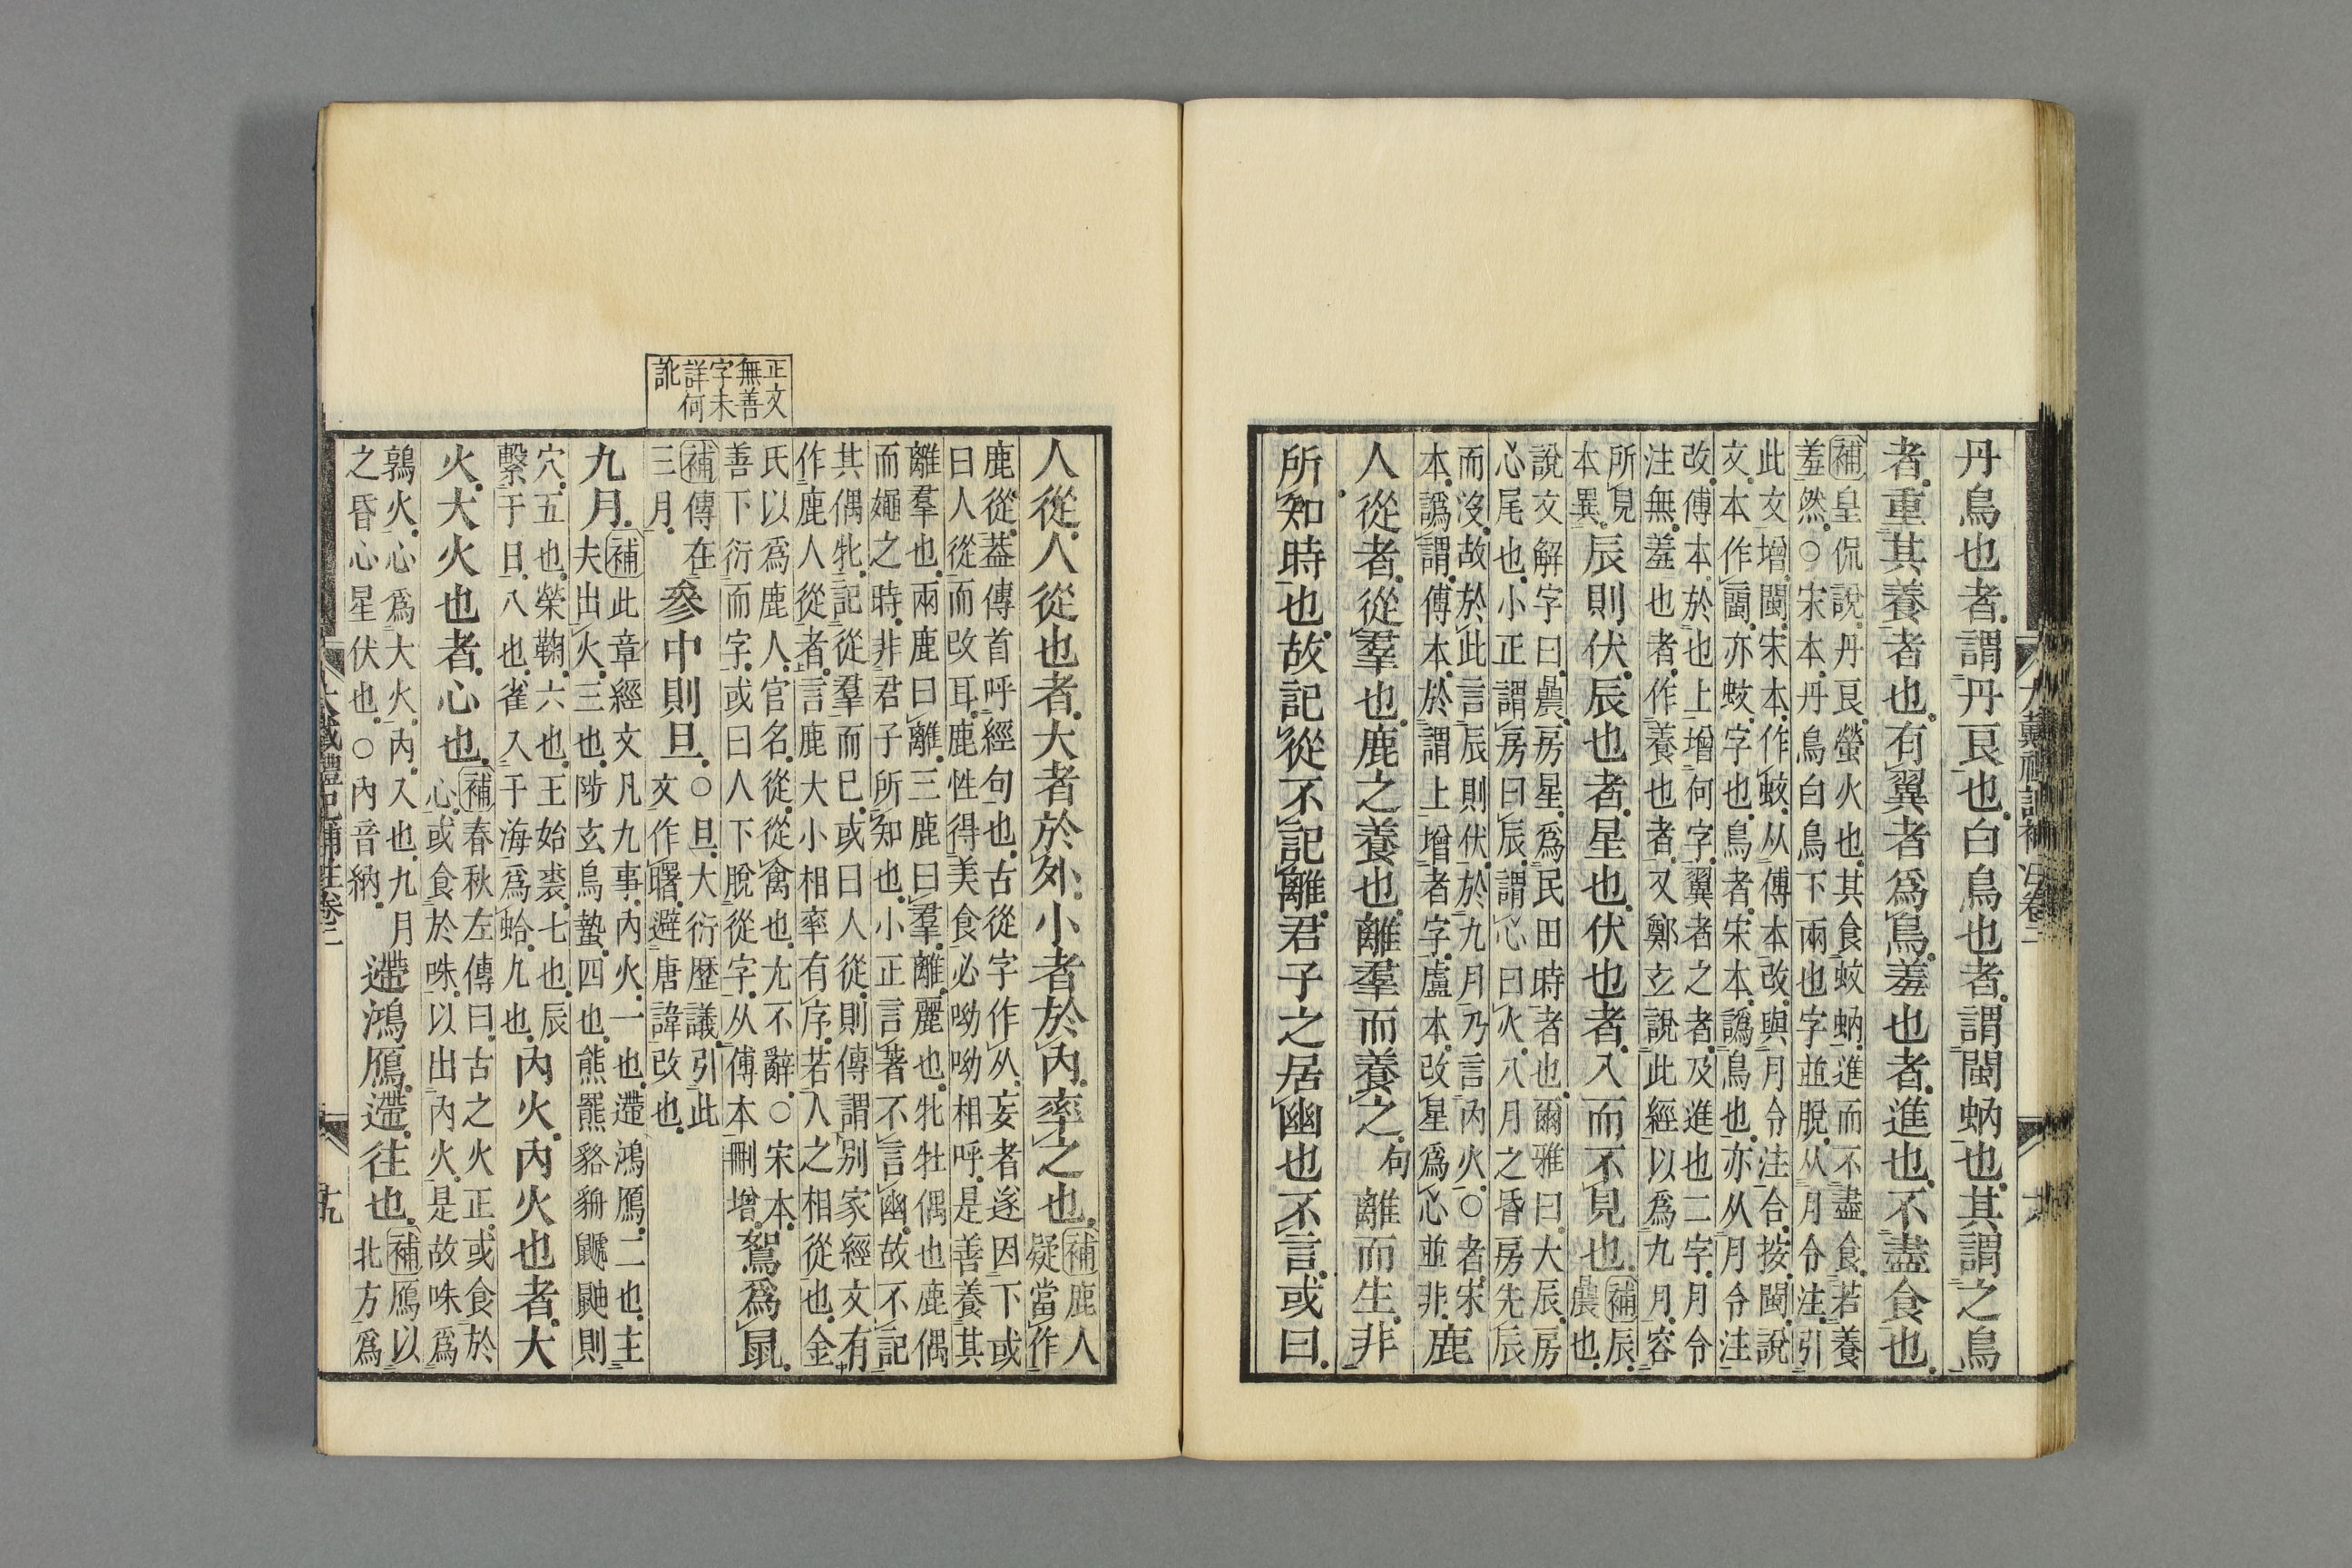 丹鳥也者謂丹良也白鳥也者謂閩蚋也其謂之鳥
者重其養者也有翼者爲鳥羞也者進也不盡食也
補皇侃說丹良螢火也其食蚊蚋進而不盡食若養
羞然○宋本丹鳥白鳥下兩也字並脫从月令注引
此文增閩宋本作蚊从傅本改與月令注合按閩說
文本作亦蚊字也鳥者宋本譌鳥也亦从月令注
改傅本於也上增何字翼者之者及進也二字月令
注無羞也者作養也者又鄭玄說此經以爲九月容
所見
本異
辰則伏辰也者星也伏也者入而不見也
補辰
也
說文解字曰房星爲民田時者也爾雅曰大辰房
心尾也小正謂房曰辰謂心曰火八月之昏房先辰
而沒故於此言辰則伏於九月乃言內火○者宋
本譌謂傅本於謂上增者字盧本改星爲心並非
鹿
人從者從羣也鹿之養也離羣而養之句離而生非
所知時也故記從不記離君子之居幽也不言或曰
大戴禮記補注卷二
正文
無善
字未
詳何
訛
人從人從也者大者於外小者於內率之也
補鹿人
疑當作
鹿從葢傳首呼經句也古從字作从妄者遂因下或
曰人從而改耳鹿性得美食必呦呦相呼是善養其
離羣也兩鹿曰離三鹿曰羣離麗也牝牡偶也鹿偶
而之時非君子所知也小正言著不言幽故不記
其偶牝記從羣而已或曰人從則傳謂別家經文有
作鹿人從者言鹿大小相率有序若人之相從也金
氏以爲鹿人官名從從禽也尤不辭○宋本
善下衍而字或曰人下脫從字从傅本刪增
鴽爲鼠
補傳在
三月
參中則旦
○旦大衍歷議引此
文作曙避唐諱改也
九月
補此章經文凡九事內火一也遰鴻鴈二也主
夫出火三也陟玄鳥蟄四也熊羆貉貈鼶鼬則
穴五也榮鞠六也王始裘七也辰
繫于日八也雀入于海爲蛤九也
內火內火也者大
火大火也者心也
補春秋左傳曰古之火正或食於
心或食於咮以出內火是故咮爲
鶉火心爲大火內入也九月
之昏心星伏也○內音納
遰鴻鴈遰往也
補鴈以
北方爲
大戴禮記補注卷二
九